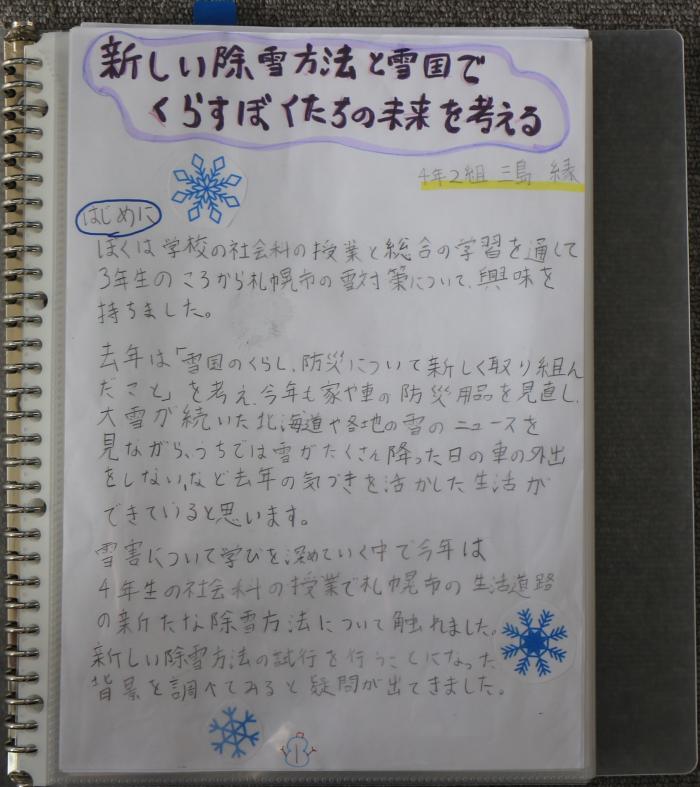 新しい除雪方法と雪国で
くらすぼくたちの未来を考える
4年2組 三島 縁
はじめに
ぼくは学校の社会科の授業と総合の学習を通して
3年生のころから札幌市の雪対策について、興味を
持ちました。
去年は「雪国のくらし、防災について新しく取り組ん
だこと」を考え、今年も家や車の防災用品を見直し、
大雪が続いた北海道や各地の雪のニュースを
見ながら、うちでは雪がたくさん降った日の車の外出
をしない、など去年の気づきを活かした生活が
できていると思います。
雪害について学びを深めていく中で今年は
4年生の社会科の授業で札幌市の生活道路
の新たな除雪方法について触れました。
新しい除雪方法の試行を行うことになった
背景を調べてみると疑問が出てきました。